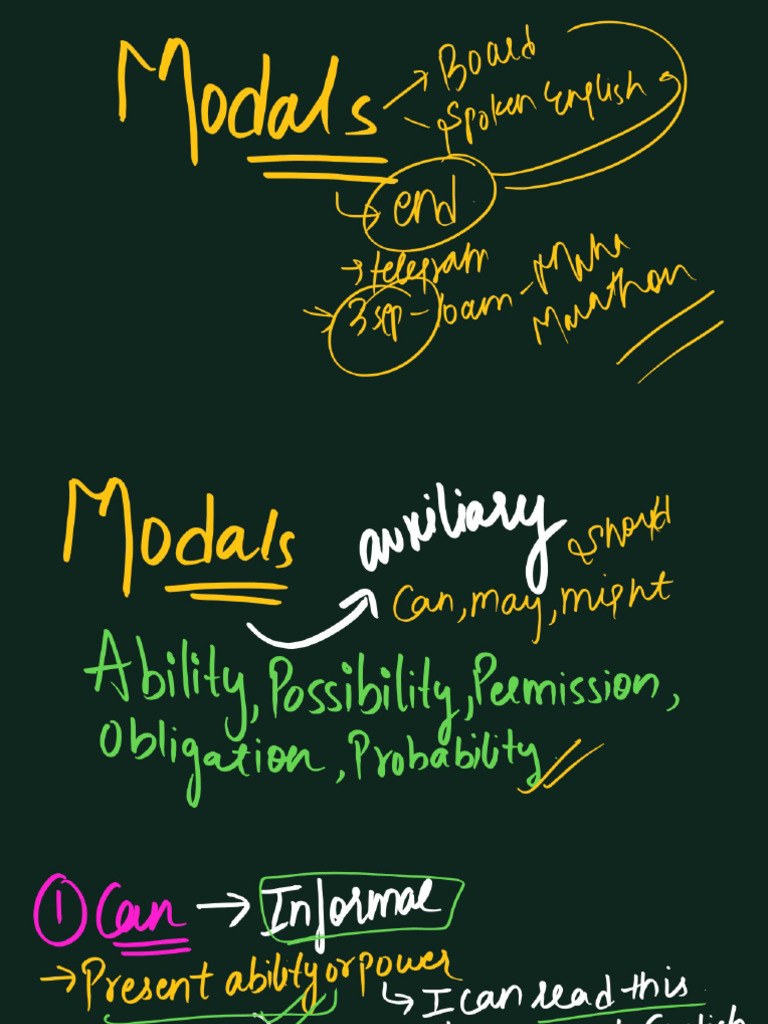 Modals → Board
Spoken English
end
→ telegram
→ 3 sep - 10am - Maha
Marathon
Modals
auxiliary
should
Can, may, might
Ability, Possibility, Permission,
Obligation, Probability
① Can → Informal
→ Present ability or power
↳ I can read this